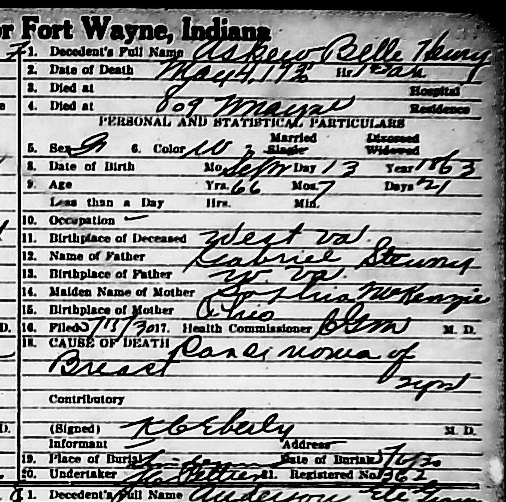 or Fort Wayne, Indiana
1. Decedent's Full Name Askew Belle Henry
2. Date of Death May 4, 193 Hr. 1 30 a M.
3. Died at Hospital
4. Died at 809 Wayne Residence
PERSONAL AND STATISTICAL PARTICULARS
5. Sex F 6. Color W 7. Married Single Divorced Widowed
8. Date of Birth Mo. Sept Day 13 Year 1863
9. Age Yrs. 66 Mos. 7 Days 21
Less than a Day Hrs. Min.
10. Occupation —
11. Birthplace of Deceased West Va
12. Name of Father Gabriel
13. Birthplace of Father W Va
14. Maiden Name of Mother McKenzie
15. Birthplace of Mother Ohio
16. Filed 5/15/30 17. Health Commissioner M. D.
18. CAUSE OF DEATH Carcinoma of
Breast
Contributory
(Signed) K C Eberly M. D.
Informant Address
19. Place of Burial Date of Burial 5/6/30
20. Undertaker 21. Registered No. 362
1. Decedent's Full Name Anderson